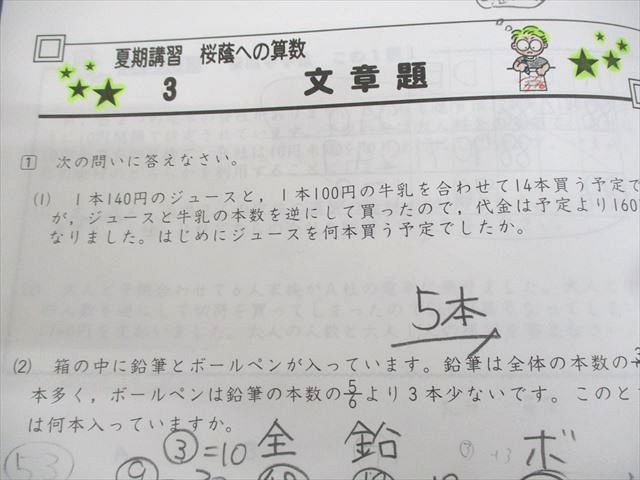 夏期講習 桜蔭への算数
3 文章題
1 次の問いに答えなさい。
(1) 1本140円のジュースと，1本100円の牛乳を合わせて14本買う予定で
が，ジュースと牛乳の本数を逆にして買ったので，代金は予定より160
なりました。はじめにジュースを何本買う予定でしたか。
5本
(2) 箱の中に鉛筆とボールペンが入っています。鉛筆は全体の本数の
本多く，ボールペンは鉛筆の本数の5/6より3本少ないです。このと
は何本入っていますか。
③=10 全 鉛 ボ
53 ⑨